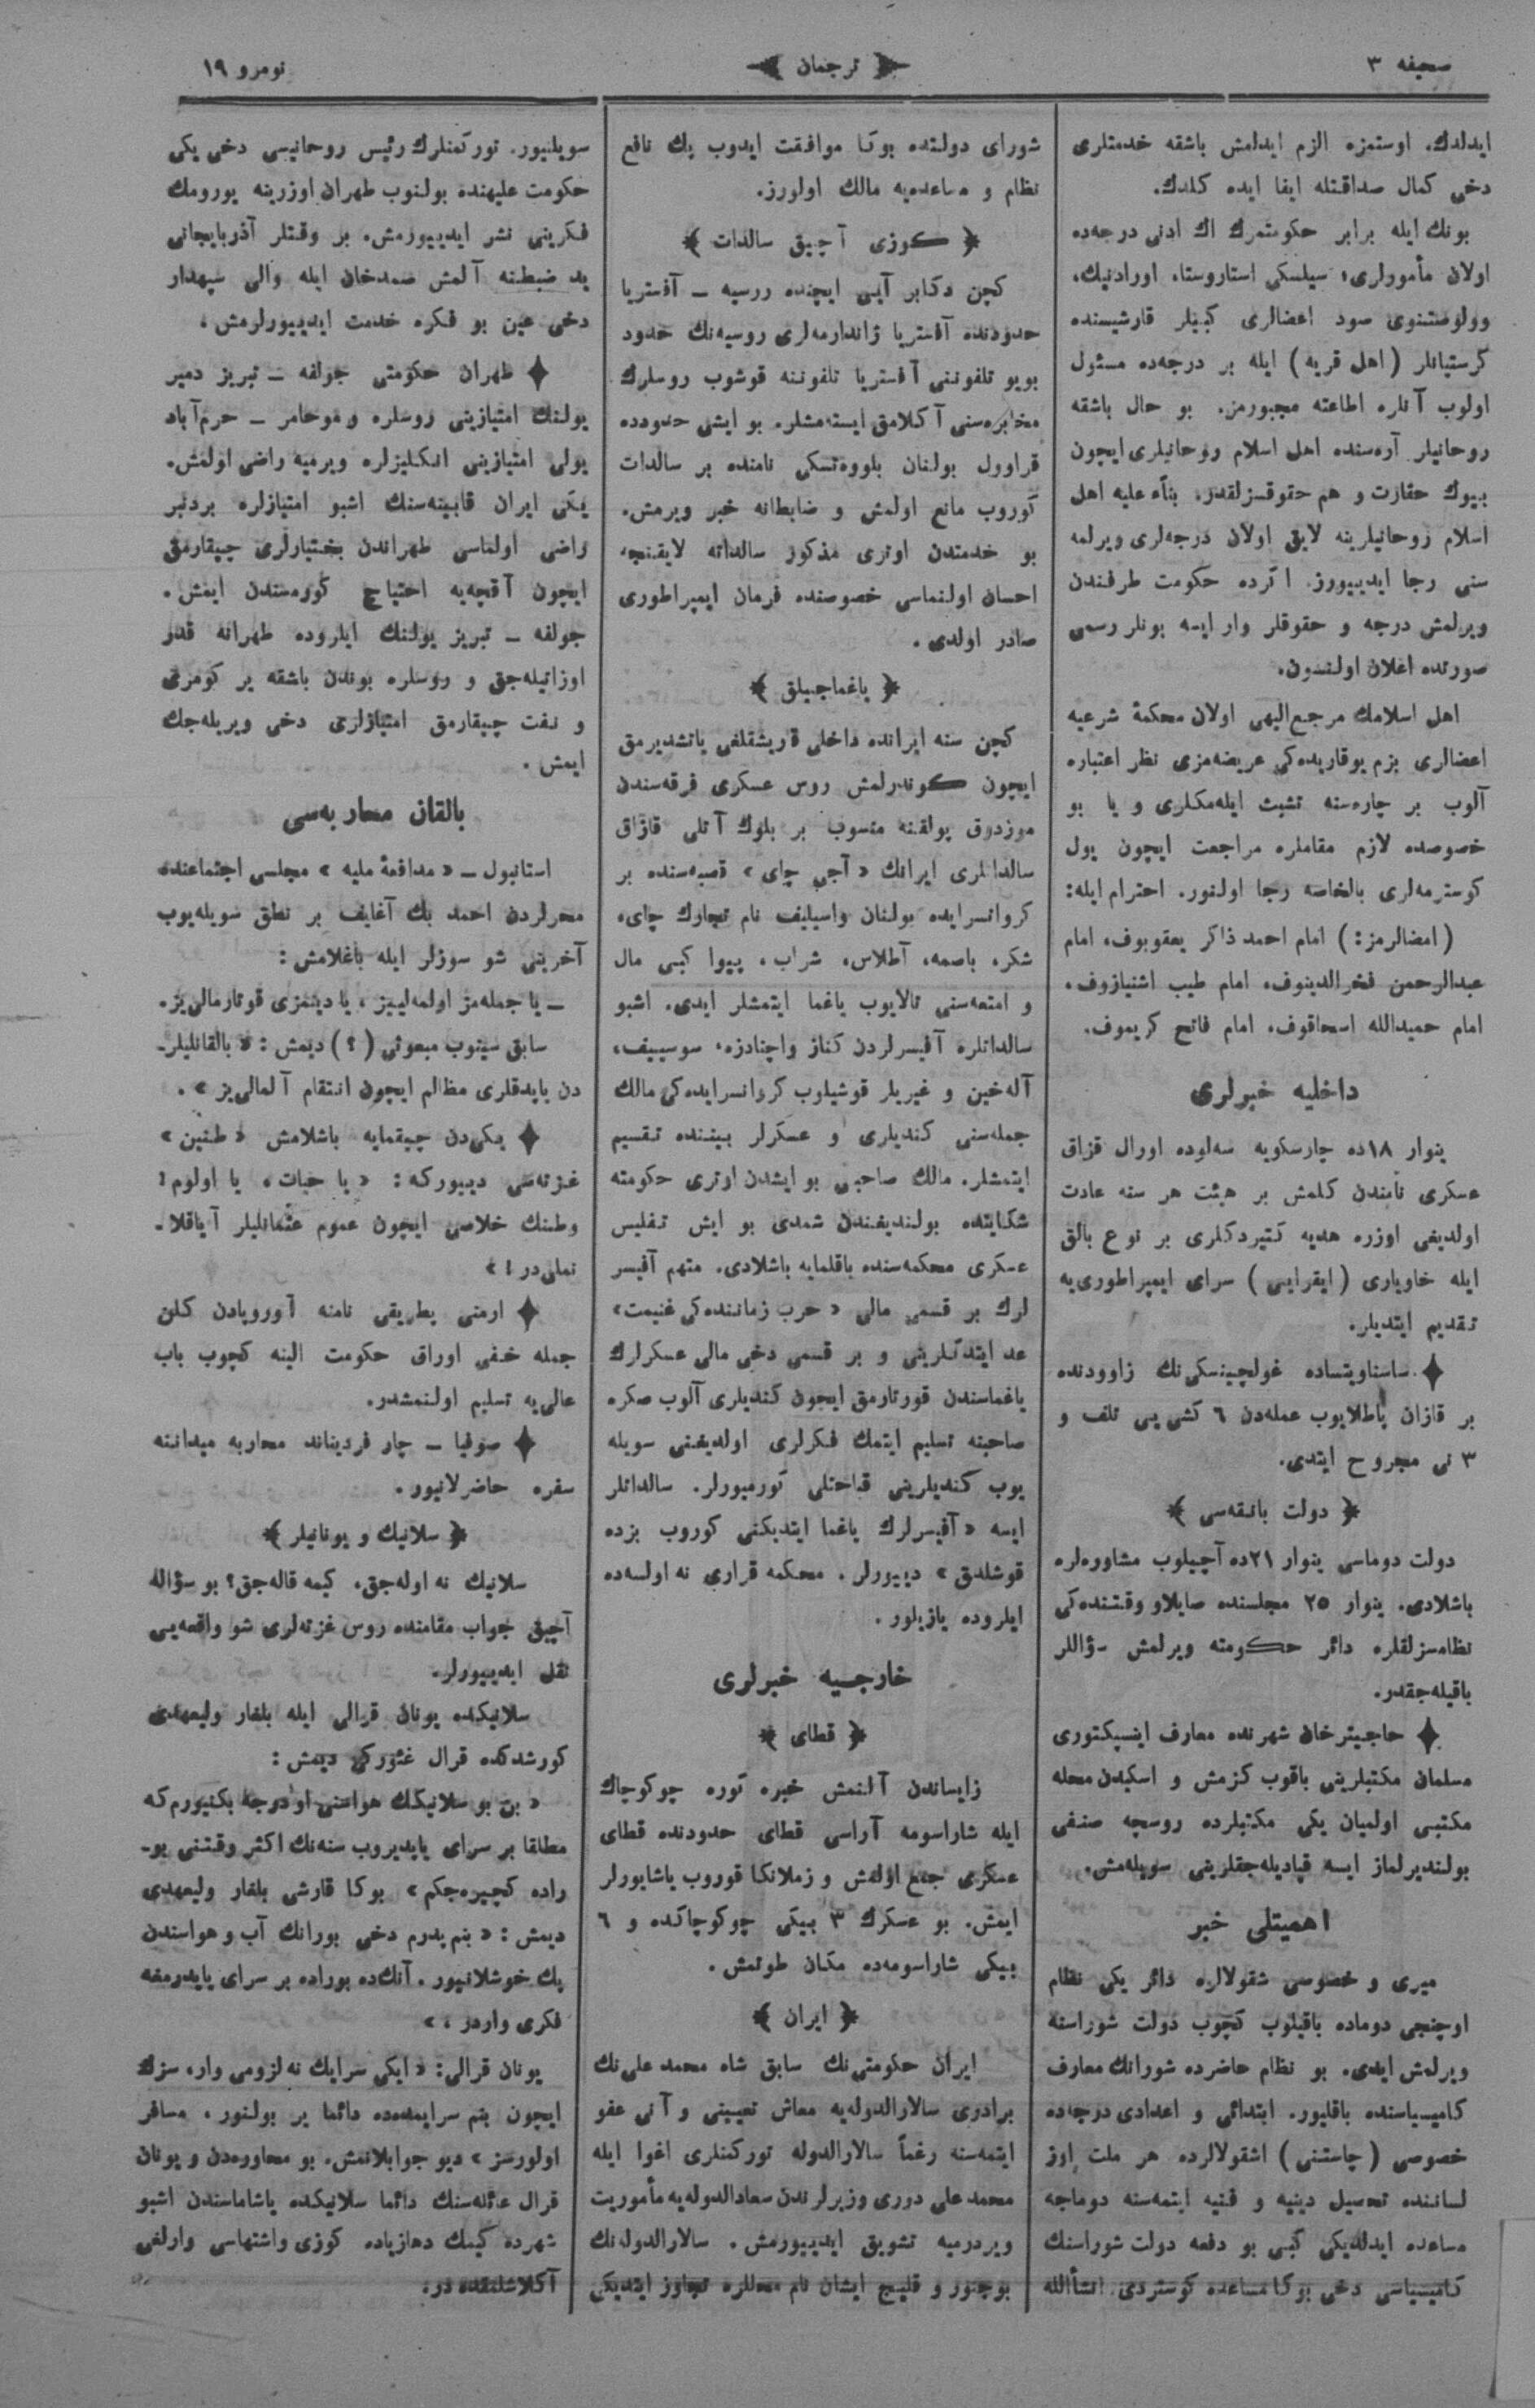 صحیفه ٣
ترجمان
نومرو ١٩
ایدلدك. اوستمزه الزم ایدلمش باشقه خدمتلری
دخی كمال صداقتله ایفا ایده كلدك.
بونك ایله برابر حكومتمزك اك ادنی درجه‌ده
اولان مأمورلری؛ سیلسكی استاروستا، اورادنیك،
وولوستنوی سود اعضالری كبیلر قارشیسنده
كرستیانلر (اهل قریه) ایله بر درجه‌ده مسئول
اولوب آنلره اطاعته مجبورمز. بو حال باشقه
روحانیلر آره‌سنده اهل اسلام روحانیلری ایچون
بیوك حقارت و هم حقوقسزلقدر. بناءً علیه اهل
اسلام روحانیلرینه لایق اولان درجه‌لری ویرلمه
سنی رجا ایدییورز. اكرده حكومت طرفندن
ویرلمش درجه و حقوقلر وار ایسه بونلر رسمی
صورتده اعلان اولنسون.
اهل اسلامك مرجع‌الیهی اولان محكمهٔ شرعیه
اعضالری بزم یوقاریده‌كی عریضه‌مزی نظر اعتباره
آلوب بر چاره‌سنه تشبث ایله‌مكلری و یا بو
خصوصده لازم مقاملره مراجعت ایچون یول
كوسترمه‌لری بالخاصه رجا اولنور. احترام ایله:
(امضالرمز:) امام احمد ذاكر یعقوبوف، امام
عبدالرحمن فخرالدینوف، امام طیب اشنیازوف،
امام حمیدالله اسحاقوف، امام فاتح كریموف.
داخلیه خبرلری
ینوار ١٨ده چارسكویه سه‌لوده اورال قزاق
عسكری نامندن كلمش بر هیئت هر سنه عادت
اولدیغی اوزره هدیه كتیردكلری بر نوع بالق
ایله خاویاری (ایقرایی) سرای ایمپراطوری‌یه
تقدیم ایتدیلر.
ساسناویتساده غولچینسكی‌نك زاوودنده
بر قازان پاطلایوب عمله‌دن ٦ كشی یی تلف و
٣ نی مجروح ایتدی.
﴿ دولت بانقه‌سی ﴾
دولت دوماسی ینوار ٢١ده آچیلوب مشاوره‌لره
باشلادی. ینوار ٢٥ مجلسنده صایلاو وقتنده‌كی
نظامسزلقلره دائر حكومته ویرلمش سؤاللر
باقیله‌جقدر.
حاجیترخان شهرنده معارف اینسپكتوری
مسلمان مكتبلرینی باقوب كزمش و اسكیدن محله
مكتبی اولمیان یكی مكتبلرده روسچه صنفی
بولندیرلماز ایسه قپادیله‌جقلرینی سویله‌مش.
اهمیتلی خبر
میری و خصوصی شقولالره دائر یكی نظام
اوچنجی دوماده باقیلوب كچوب دولت شوراسنه
ویرلمش ایدی. بو نظام حاضرده شورانك معارف
كامیسیاسنده باقلیور. ابتدائی و اعدادی درجه‌ده
خصوصی (چاستنی) اشقولالرده هر ملت اوز
لساننده تحصیل دینیه و فنیه ایتمه‌سنه دوماجه
مساعده ایدلدیكی كبی بو دفعه دولت شوراسنك
كامیسیاسی دخی بوكا مساعده كوستردی. انشأالله
شورای دولتده بوكا موافقت ایدوب پك نافع
نظام و مساعده‌یه مالك اولورز.
﴿ كوزی آچیق سالدات ﴾
كچن دكابر آیی ایچنده روسیه – آفستریا
حدودنده آفستریا ژاندارمه‌لری روسیه‌نك حدود
بویو تلفوننی آفستریا تلفوننه قوشوب روسلرك
مخابره‌سنی آكلامق ایسته‌مشلر. بو ایشی حدودده
قراوول بولنان بلووه‌تسكی نامنده بر سالدات
كوروب مانع اولمش و ضابطانه خبر ویرمش.
بو خدمتدن اوتری مذكور سالداته لایقنجه
احسان اولنماسی خصوصنده فرمان ایمپراطوری
صادر اولدی.
﴿ یاغماجیلق ﴾
كچن سنه ایرانده داخلی قریشقلغی یاتشدیرمق
ایچون كوندرلمش روس عسكری فرقه‌سندن
موزدوق پولقنه منسوب بر بلوك آتلی قازاق
سالداتلری ایرانك «آجی چای» قصبه‌سنده بر
كروانسرایده بولنان واسیلیف نام تجارك چای،
شكر، باصمه، آطلاس، شراب، پیوا كبی مال
و امتعه‌سنی تالایوب یاغما ایتمشلر ایدی. اشبو
سالداتلره آفیسرلردن كناز واچنادزه، سوسییف،
آله‌خین و غیریلر قوشیلوب كروانسرایده‌كی مالك
جمله‌سنی كندیلری و عسكرلر بیننده تقسیم
ایتمشلر. مالك صاحبی بو ایشدن اوتری حكومته
شكایتده بولندیغندن شمدی بو ایش تفلیس
عسكری محكمه‌سنده باقلمایه باشلادی. متهم آفیسر
لرك بر قسمی مالی «حرب زماننده‌كی غنیمت»
عد ایتدكلرینی و بر قسمی دخی مالی عسكرلرك
یاغماسندن قورتارمق ایچون كندیلری آلوب صكره
صاحبنه تسلیم ایتمك فكرلری اولدیغنی سویله
یوب كندیلرینی قباحتلی كورمیورلر. سالداتلر
ایسه «آفیسرلرك یاغما ایتدیكنی كوروب بزده
قوشلدق» دییورلر. محكمه قراری نه اولسه‌ده
ایلروده یازیلور.
خارجیه خبرلری
﴿ قطای ﴾
زایساندن آلنمش خبره كوره چوكوچاك
ایله شاراسومه آراسی قطای حدودنده قطای
عسكری جمع اولمش و زملانكا قوروب یاشایورلر
ایمش. بو عسكرك ٣ بیكی چوكوچاكده و ٦
بیكی شاراسومه‌ده مكان طوتمش.
﴿ ایران ﴾
ایران حكومتی‌نك سابق شاه محمد علی‌نك
برادری سالارالدوله‌یه معاش تعیینی و آنی عفو
ایتمه‌سنه رغماً سالارالدوله توركمنلری اغوا ایله
محمد علی دوری وزیرلرندن سعادالدوله‌یه مأموریت
ویردرمیه تشویق ایدییورمش. سالارالدوله‌نك
بوجنور و قلیج ایشان نام محللره تجاوز ایتدیكی
سویلنیور. توركمنلرك رئیس روحانیسی دخی یكی
حكومت علیهنده بولنوب طهران اوزرینه یورومك
فكرینی نشر ایدییورمش. بر وقتلر آذربایجانی
ید ضبطنه آلمش صمدخان ایله والی سپهدار
دخی عین بو فكره خدمت ایدییورلرمش.
طهران حكومتی جولفه – تبریز دمیر
یولنك امتیازینی روسلره و موحامر – حرم‌آباد
یولی امتیازینی انكلیزلره ویرمیه راضی اولمش.
یكی ایران قابینه‌سنك اشبو امتیازلره بردنبر
راضی اولماسی طهراندن بختیارلری چیقارمق
ایچون آقچه‌یه احتیاج كورمسندن ایمش.
جولفه – تبریز یولنك ایلروده طهرانه قدر
اوزاتیله‌جق و روسلره بوندن باشقه یر كومری
و نفت چیقارمق امتیازلری دخی ویریله‌جك
ایمش.
بالقان محاربه‌سی
استانبول – «مدافعهٔ ملیه» مجلسی اجتماعنده
محرلردن احمد بك آغایف بر نطق سویله‌یوب
آخرینی شو سوزلر ایله باغلامش:
– یا جمله‌مز اولمه‌لییز، یا دینمزی قوتارمالی‌یز.
سابق سینوب مبعوثی (؟) دیمش: «بالقانلیلر-
دن یاپدقلری مظالم ایچون انتقام آلمالی‌یز».
یكی‌دن چیقمایه باشلامش «طنین»
غزته‌سی دییوركه: «یا حیات، یا اولوم!
وطنك خلاصی ایچون عموم عثمانلیلر آیاقلا-
نملی‌در!»
ارمنی بطریقی نامنه آوروپادن كلن
جمله خفی اوراق حكومت الینه كچوب باب
عالی‌یه تسلیم اولنمشدر.
صوفیا – چار فردیناند محاربه میداننه
سفره حاضرلانیور.
﴿ سلانیك و یونانیلر ﴾
سلانیك نه اوله‌جق، كیمه قاله‌جق؟ بو سؤاله
آچیق جواب مقامنده روس غزته‌لری شو واقعه‌یی
نقل ایدییورلر.
سلانیكده یونان قرالی ایله بلغار ولیعهدی
كورشدكده قرال غئوركی دیمش:
«بن بو سلانیكك هواسنی او درجه بكنیورم كه
مطلقا بر سرای یاپدیروب سنه‌نك اكثر وقتنی بو-
راده كچیره‌جكم» بوكا قارشی بلغار ولیعهدی
دیمش: «بنم پدرم دخی بورانك آب و هواسندن
پك خوشلانیور. آنك‌ده بوراده بر سرای یاپدرمغه
فكری واردر.»
یونان قرالی: «ایكی سرایك نه لزومی وار، سزك
ایچون بنم سرایمده‌ده دائما یر بولنور، مسافر
اولورسز» دیو جوابلانمش. بو محاوره‌دن و یونان
قرال عائله‌سنك دائما سلانیكده یاشاماسندن اشبو
شهرده كیمك دهازیاده كوزی واشتهاسی وارلغی
آكلاشلمقده در.